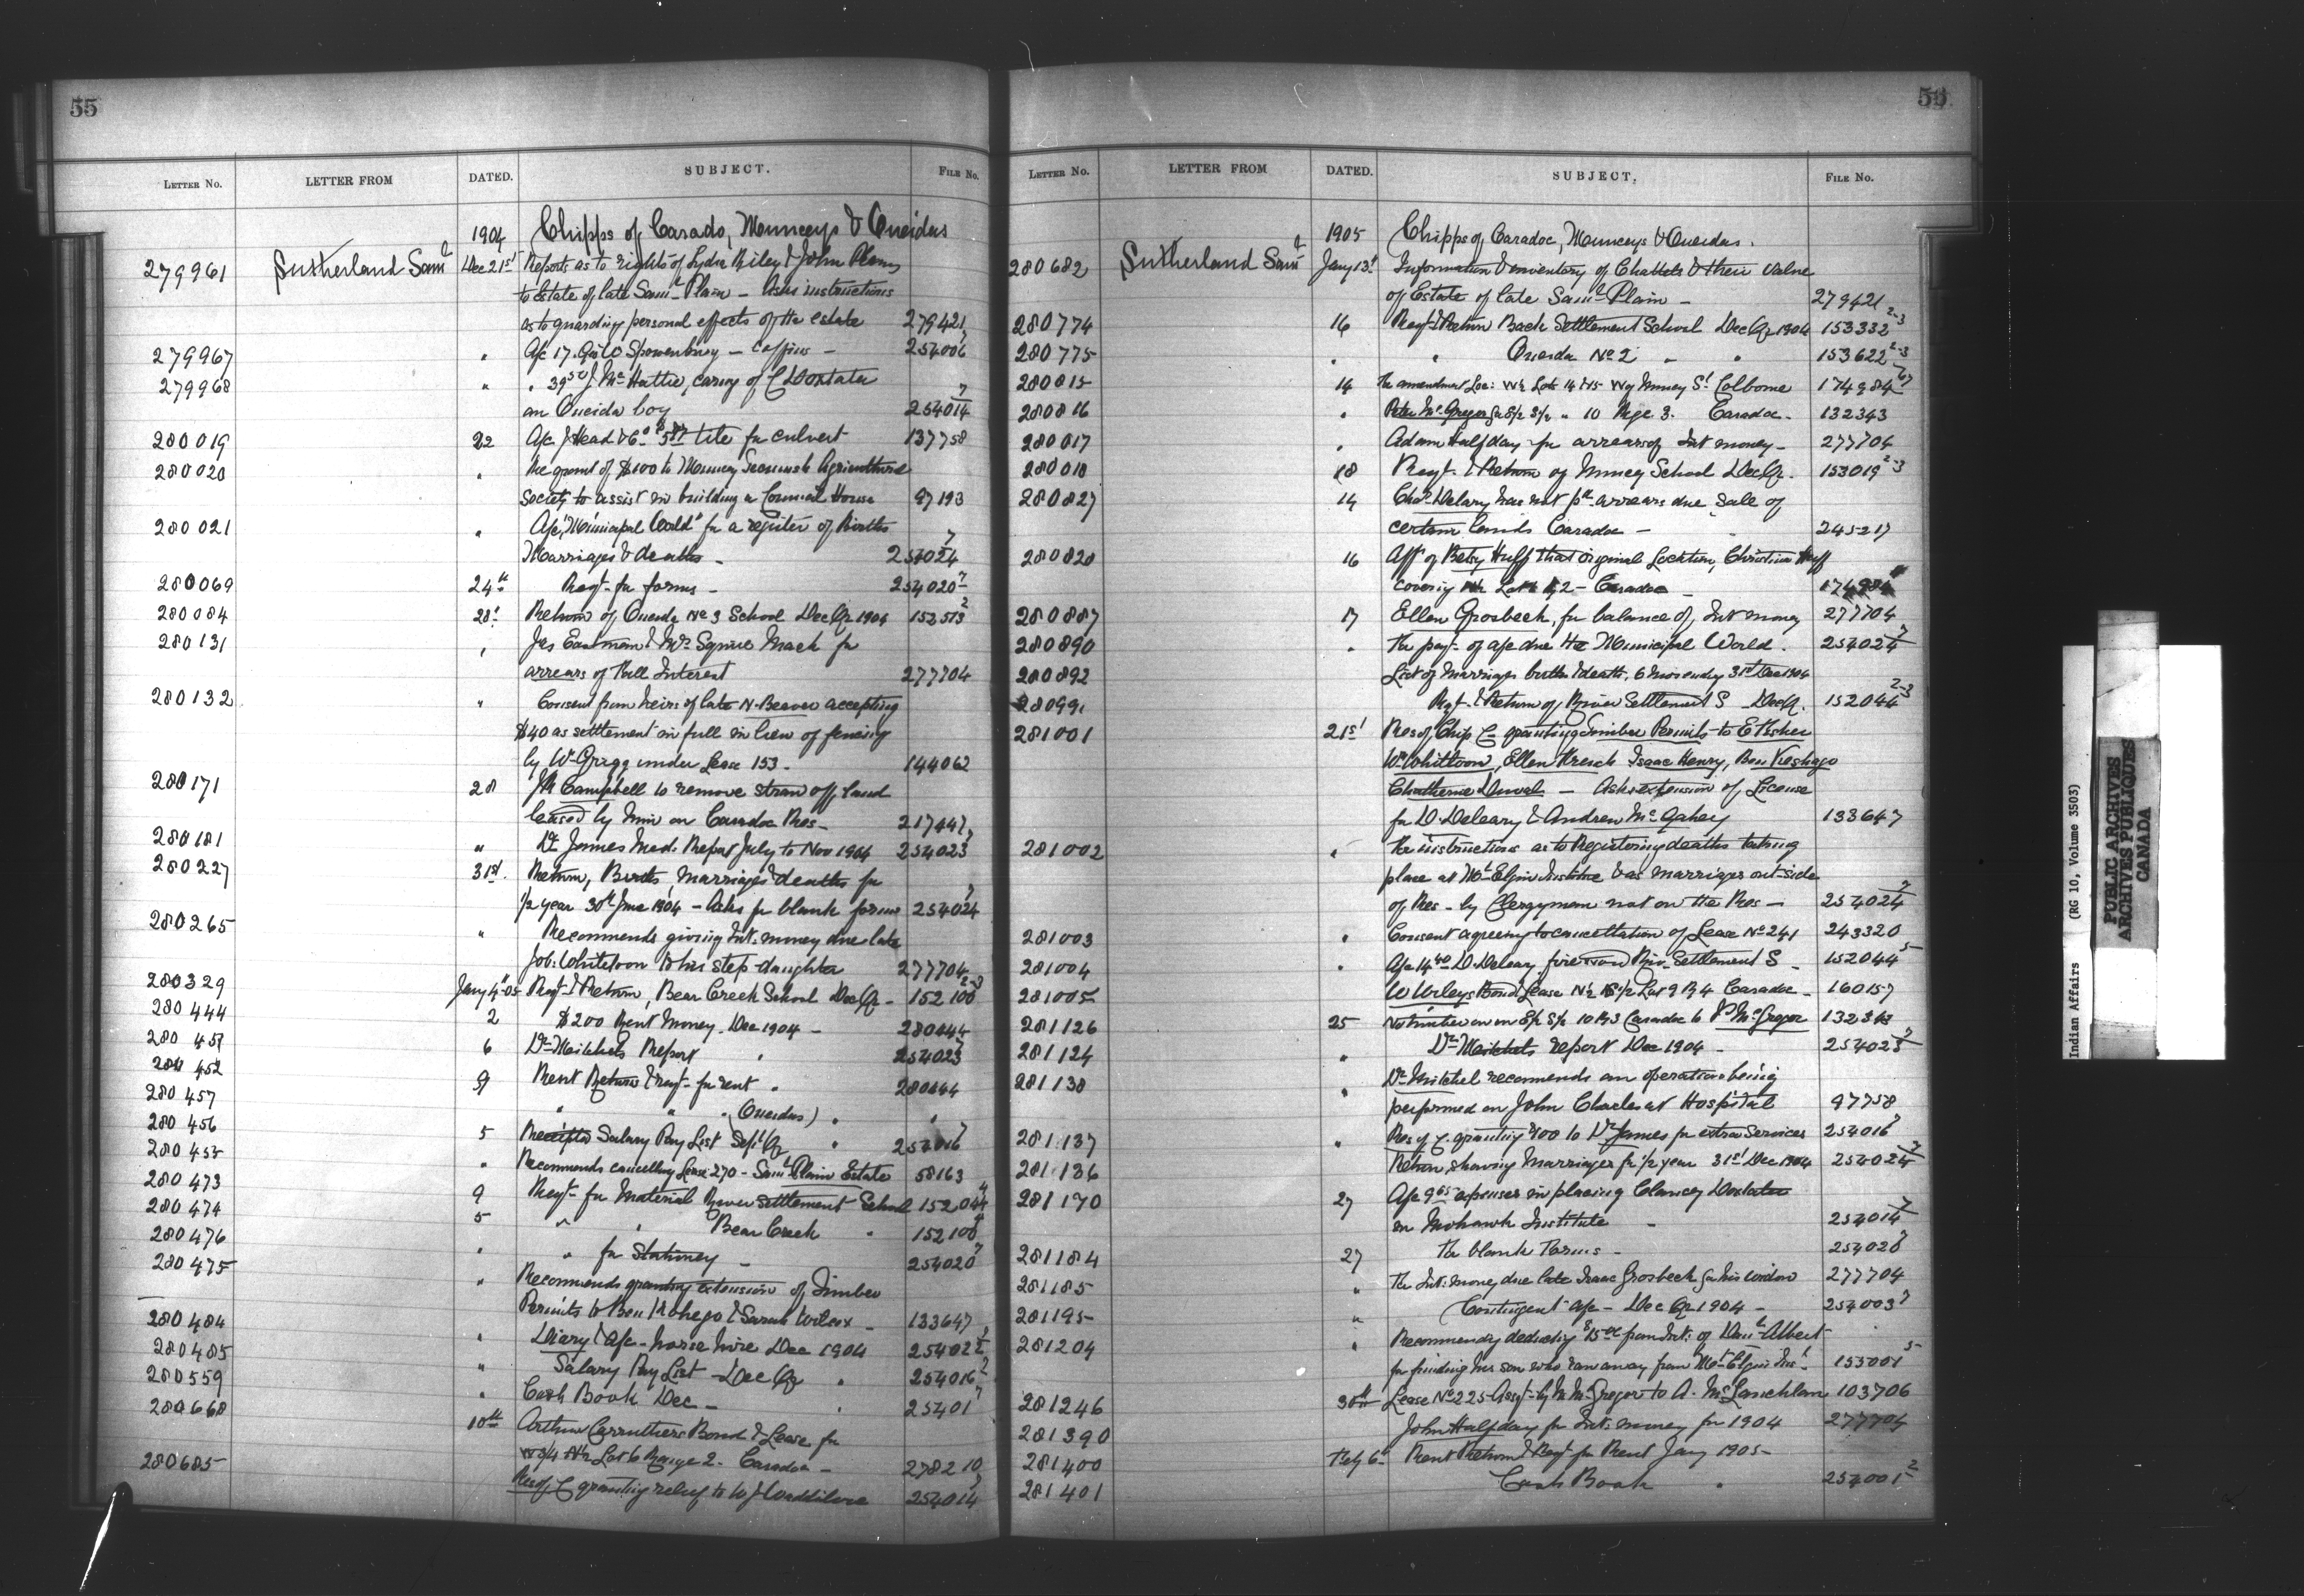 55
LETTER NO. LETTER FROM DATED. SUBJECT. FILE No.
1904 Chipps of Carado, Munceys & Oneidas
279961 Sutherland Saml Dec 21st Reports as to rights of Lydia Riley & John Plain
to Estate of late Saml Plain - Asks instructions
as to guarding personal effects of the estate 279421
279967 " A/c 17. Geo Spowenburg - coffins - 254006
279968 " " 39 50 J. McHattie, caring of C Doxtater
an Oneida boy 254014 7
280019 22 A/c J Head & Co $5 87 tile for culvert 137758
280020 " the grant of $100 to Muncey Agricultural
Society to assist in building a Council House 97193
280021 " A/c "Municipal World" for a register of Births
Marriages & deaths - 254024 7
280069 24th Reqt for forms - 254020 7
280084 28t Return of Oneida No 3 School Dec Qr 1904 153513 2
280131 " Jas Eastman & Mrs Squire Mack for
arrears of Int Interest 277704
280132 " Consent from heirs of late N. Beaver accepting
$40 as settlement in full in lieu of fencing
by Wm Gregg under Lease 153 - 144062
280171 28 J R Campbell to remove straw off land
leased by him on Caradoc Res - 217447
280181 " Dr James Med. Report July to Nov 1904 254023 7
280227 31st. Return, Births, marriages & deaths for
1/2 year 30th June 1904 - Asks for blank forms 254024 7
280265 " Recommends giving Int. money due late
Job. Whiteloon to his step-daughter 277704
280329 Jany 4th 05 Reqt & Return, Bear Creek School Dec Qr - 152100 2-3
280444 2 $200 Rent Money. Dec 1904 - 280444
280451 6 Dr Mitchels Report " 254023 7
280452 9 Rent Return & reqt for rent " 280444
280457 " " " (Oneidas) " "
280456 5 Receipted Salary Pay List Sept Qr " 254016 7
280455 " Recommends cancelling Lease 270 - Saml Plain Estate 58163
280473 9 Reqt for Material River Settlement School 152044 4
280474 5 " " Bear Creek " 152100 4
280476 " " for Stationery - 254020 7
280475 " Recommends granting extension of Timber
Permits to Ben Keshego & Sarah Wilcox - 133647
280484 " Diary & A/c - horse hire Dec 1904 254022 7
280485 " Salary Pay List - Dec Qr " 254016 7
280559 " Cash Book Dec - " 25401 7
280668 10th Arthur Carruthers Bond & Lease for
W 3/4 N1/2 Lot 6 Range 2. Caradoc - 278210
280685 Res of C granting relief to W J Waddilove 254014 7
56
LETTER NO. LETTER FROM DATED. SUBJECT, FILE No.
1905 Chipps of Caradoc, Munceys & Oneidas.
280682 Sutherland Saml Jany 13t Information & inventory of Chattels & their value
of Estate of late Saml Plain - 279421
280774 16 Reqt & Return Back Settlement School Dec Qr 1904 153332 2-3
280775 " " Oneida No 2 " " 153622 2-3
280815 14 The amendment Loc: W1/2 Lots 14 & 15 W of Muncey St Colborne 174984 67
280816 " Peter McGregor for E1/2 S1/2 " 10 Rge 3. Caradoc - 132343
280817 " Adam Halfday for arrears of Int money - 277704
280818 18 Reqt & Return of Muncey School Dec Qr. 153019 2-3
280827 14 Chas Delary has not pd arrears due Sale of
certain lands Caradoc - 245217
280828 16 Aff of Betsy Huff that original Location, Christian Huff
covering Lot 2 - Caradoc - 174984
280887 17 Ellen Grosbeck, for balance of Int money 277704
280890 " The payt of a/c due the Municipal World. 254024 7
280892 List of Marriages births & deaths, 6 mos ending 31st Dec 1904
280991 Reqt & Return of River Settlement S Dec Qr. 152044 2-3
281001 21st Res of Chip C granting Timber Permits to E Fisher
Wm Whitloon, Ellen French Isaac Henry, Ben Keshego
Chatherine Duval - Asks extension of License
for D. Deleary & Andrew McGahey 133647
281002 " The instructions as to Registering deaths taking
place at Mt Elgin Institute & as marriages out-side
of Res - by Clergymen not on the Res - 254024 7
281003 " Consent agreeing to cancellation of Lease No 241 243320
281004 " A/c 14 40 D. Deleary, firewood Riv. Settlement S - 152044 5
281005 W Wrleys Bond & Lease N1/2 S1/2 Lot 9 R 4 Caradoc - 160157
281126 25 No timber on E1/2 S1/2 10 R 3 Caradoc to P. McGregor 132343
281124 " Dr Mitchels report Dec 1904 - 254023 7
281138 " Dr Mitchel recomends an operation being
performed on John Charles at Hospital 97758
281137 " Res of C. granting $100 to Dr James for extra Services 254016 7
281136 Return showing Marriages for 1/2 year 31st Dec 1904 254024 7
281170 27 A/c 9 65 expenses in placing Clancey Doxtater
in Mohawk Institute - 254014 7
281184 27 The blank Forms - 254020 7
281185 " The Int. money due late Isaac Grosbeck for his widow 277704
281195 " Contingent A/c - Dec Qr 1904 - 254003 7
281204 " Recommends deducting $15 00 from Int. of Danl Albert
for finding his son who ran away from Mt Elgin Inst. 155001 5
281246 30th Lease No 225 Assgt by M McGregor to A. McLauchlan 103706
281390 John Halfday for Int. money for 1904 277704
281400 Feby 6t Rent Return & Reqt for Rent Jany 1905
281401 Cash Book " 254001 2
Indian Affairs (RG 10, Volume 3503)
PUBLIC ARCHIVES
ARCHIVES PUBLIQUES
CANADA